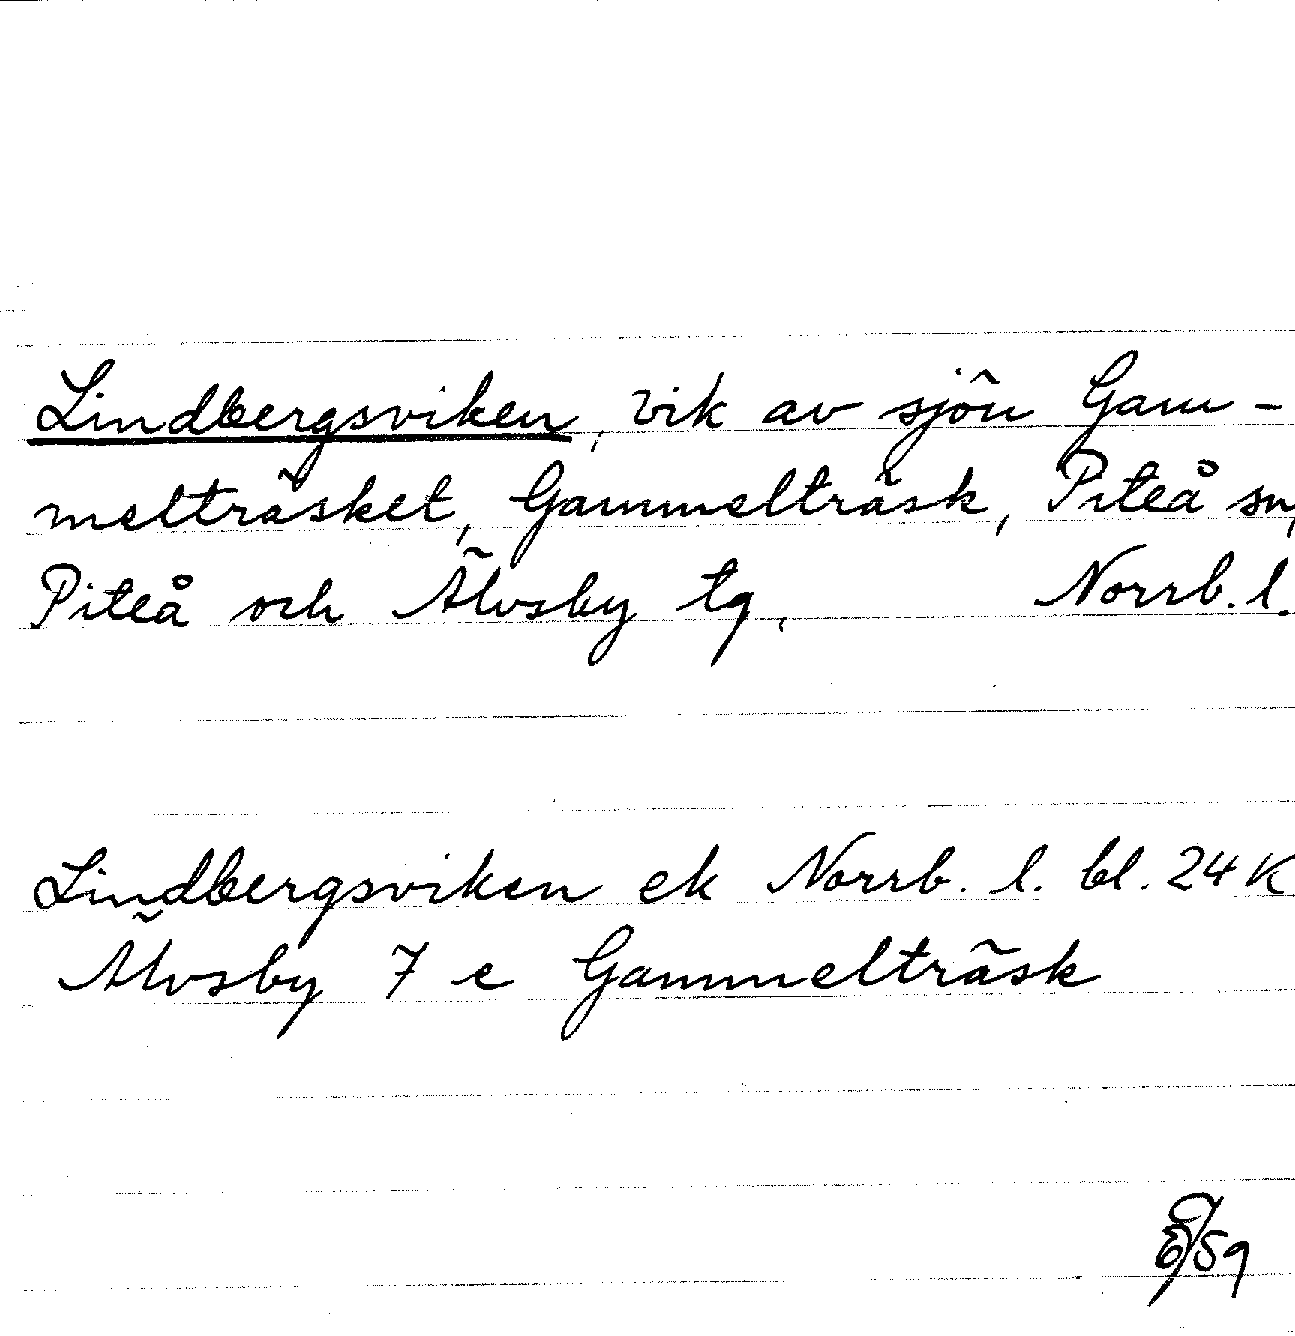 Lindbergsviken, vik av sjön Gam-
melträsket, Gammelträsk, Piteå sn,
Piteå och Älvsby tg, Norrb. l.
Lindbergsviken ek Norrb. l. bl. 24 K
Älvsby 7 e Gammelträsk